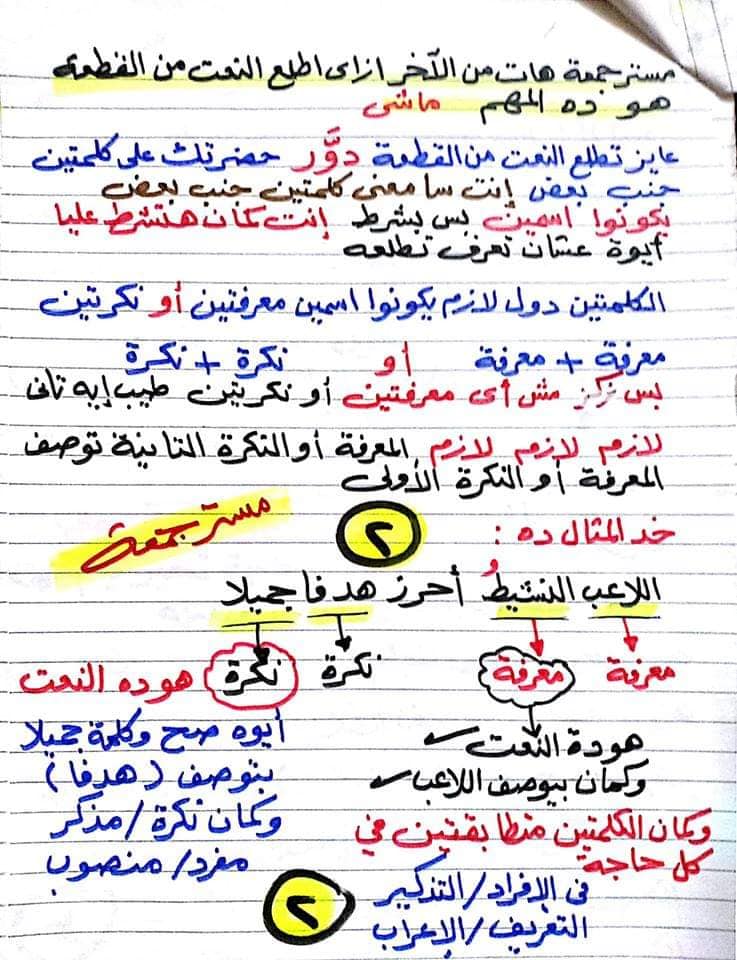 مستر جمعة هات من الآخر ازاى اطلع النعت من القطعة
هو ده المهم ماشى
عايز تطلع النعت من القطعة دوَّر حضرتك على كلمتين
جنب بعض إنت سا معنى كلمتين جنب بعض
يكونوا اسمين بس بشرط إنت كمان هتشرط عليا
أيوة عشان تعرف تطلعه
الكلمتين دول لازم يكونوا اسمين معرفتين أو نكرتين
معرفة + معرفة أو نكرة + نكرة
بس نركز مش أى معرفتين أو نكريتين طيب إيه تانى
لازم لازم لازم المعرفة أو النكرة التانية توصف
المعرفة أو النكرة الأولى
خد المثال ده :
٢
مستر جمعة
اللاعب النشيطُ أحرز هدفا جميلا
معرفة معرفة نكرة نكرة هو ده النعت
هو دة النعت
وكمان بيوصف اللاعب
وكمان الكلمتين متطابقتين في
كل حاجة
فى الإفراد/التذكير
التعريف/الإعراب
أيوه صح وكلمة جميلا
بتوصف (هدفا)
وكمان نكرة/مذكر
مفرد/منصوب
٢